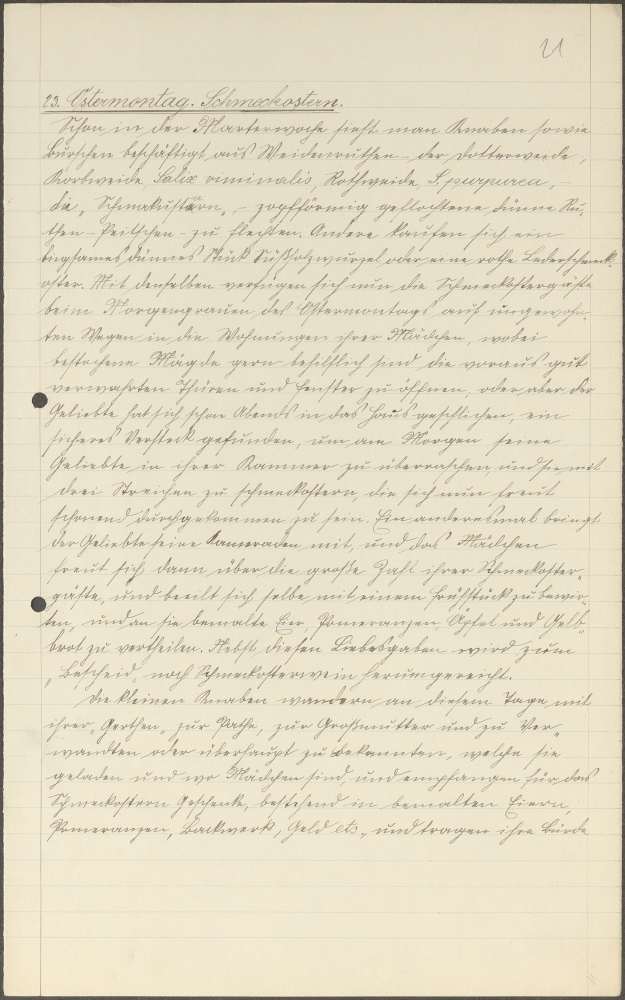 21
23. Ostermontag. Schmeckostern.
Schon in der Marterwoche sieht man Knaben sowie
Burschen beschäftigt aus Weidenruthen – der Dotterweide,
Korbweide, Salix viminalis, Rothweide, S. purpurea, –
die „Schmakustern“, – zopfförmig geflochtene dünne Ru-
then – Peitschen – zu flechten. Andere kaufen sich ein
biegsames dünnes Stück Süßholzwurzel oder eine rothe Lederschmeck-
oster. Mit denselben verfügen sich nun die Schmeckostergäste
beim Morgengrauen des Ostermontags auf ungewohn-
ten Wegen in die Wohnungen ihrer Mädchen, wobei
bestochene Mägde gern behilflich sind, die voraus gut
verwahrten Thüren und Fenster zu öffnen, oder aber der
Geliebte hat sich schon Abends in das Haus geschlichen, ein
sicheres Versteck gefunden, um am Morgen seine
Geliebte in ihrer Kammer zu überraschen, und sie mit
drei Streichen zu schmeckostern, die sich nun freut
schonend durchgekommen zu sein. Ein anderesmal bringt
der Geliebte seine Kameraden mit, und das Mädchen
freut sich dann über die große Zahl ihrer Schmeckoster-
gäste, und beeilt sich selbe mit einem Frühstück zu bewir-
ten, und an sie bemalte Eier, Pomeranzen, Äpfel und Gelb-
brot zu vertheilen. Nebst diesen Liebesgaben wird zum
„Bescheid“ noch Schmeckosterwein herumgereicht.
Die kleinen Knaben wandern an diesem Tage mit
ihrer „Gerthen“ zur Pathe, zur Großmutter und zu Ver-
wandten oder überhaupt zu Bekannten, welche sie
geladen und wo Mädchen sind, und empfangen für das
Schmeckostern Geschenke, bestehend in bemalten Eiern,
Pomeranzen, Backwerk, Geld etc., und tragen ihre Bürde